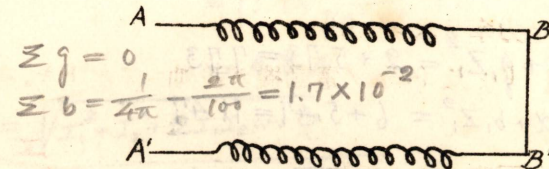 A B
Σ g = 0
Σ b = 1/4π - 2π/100 = 1.7 × 10⁻²
A' B'